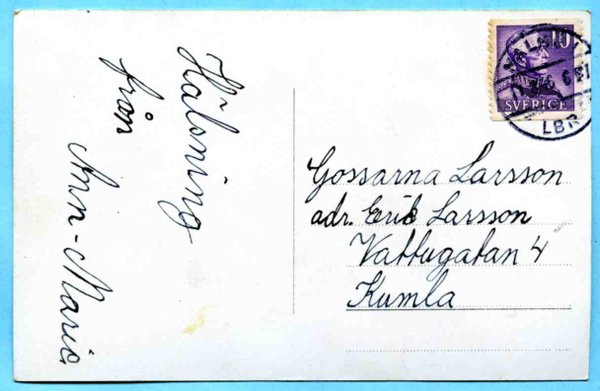 Hälsning
från
Ann-Marie
10
SVERIGE
MALMÖ 1
LBR
Gossarna Larsson
adr. Erik Larsson
Vattugatan 4
Kumla